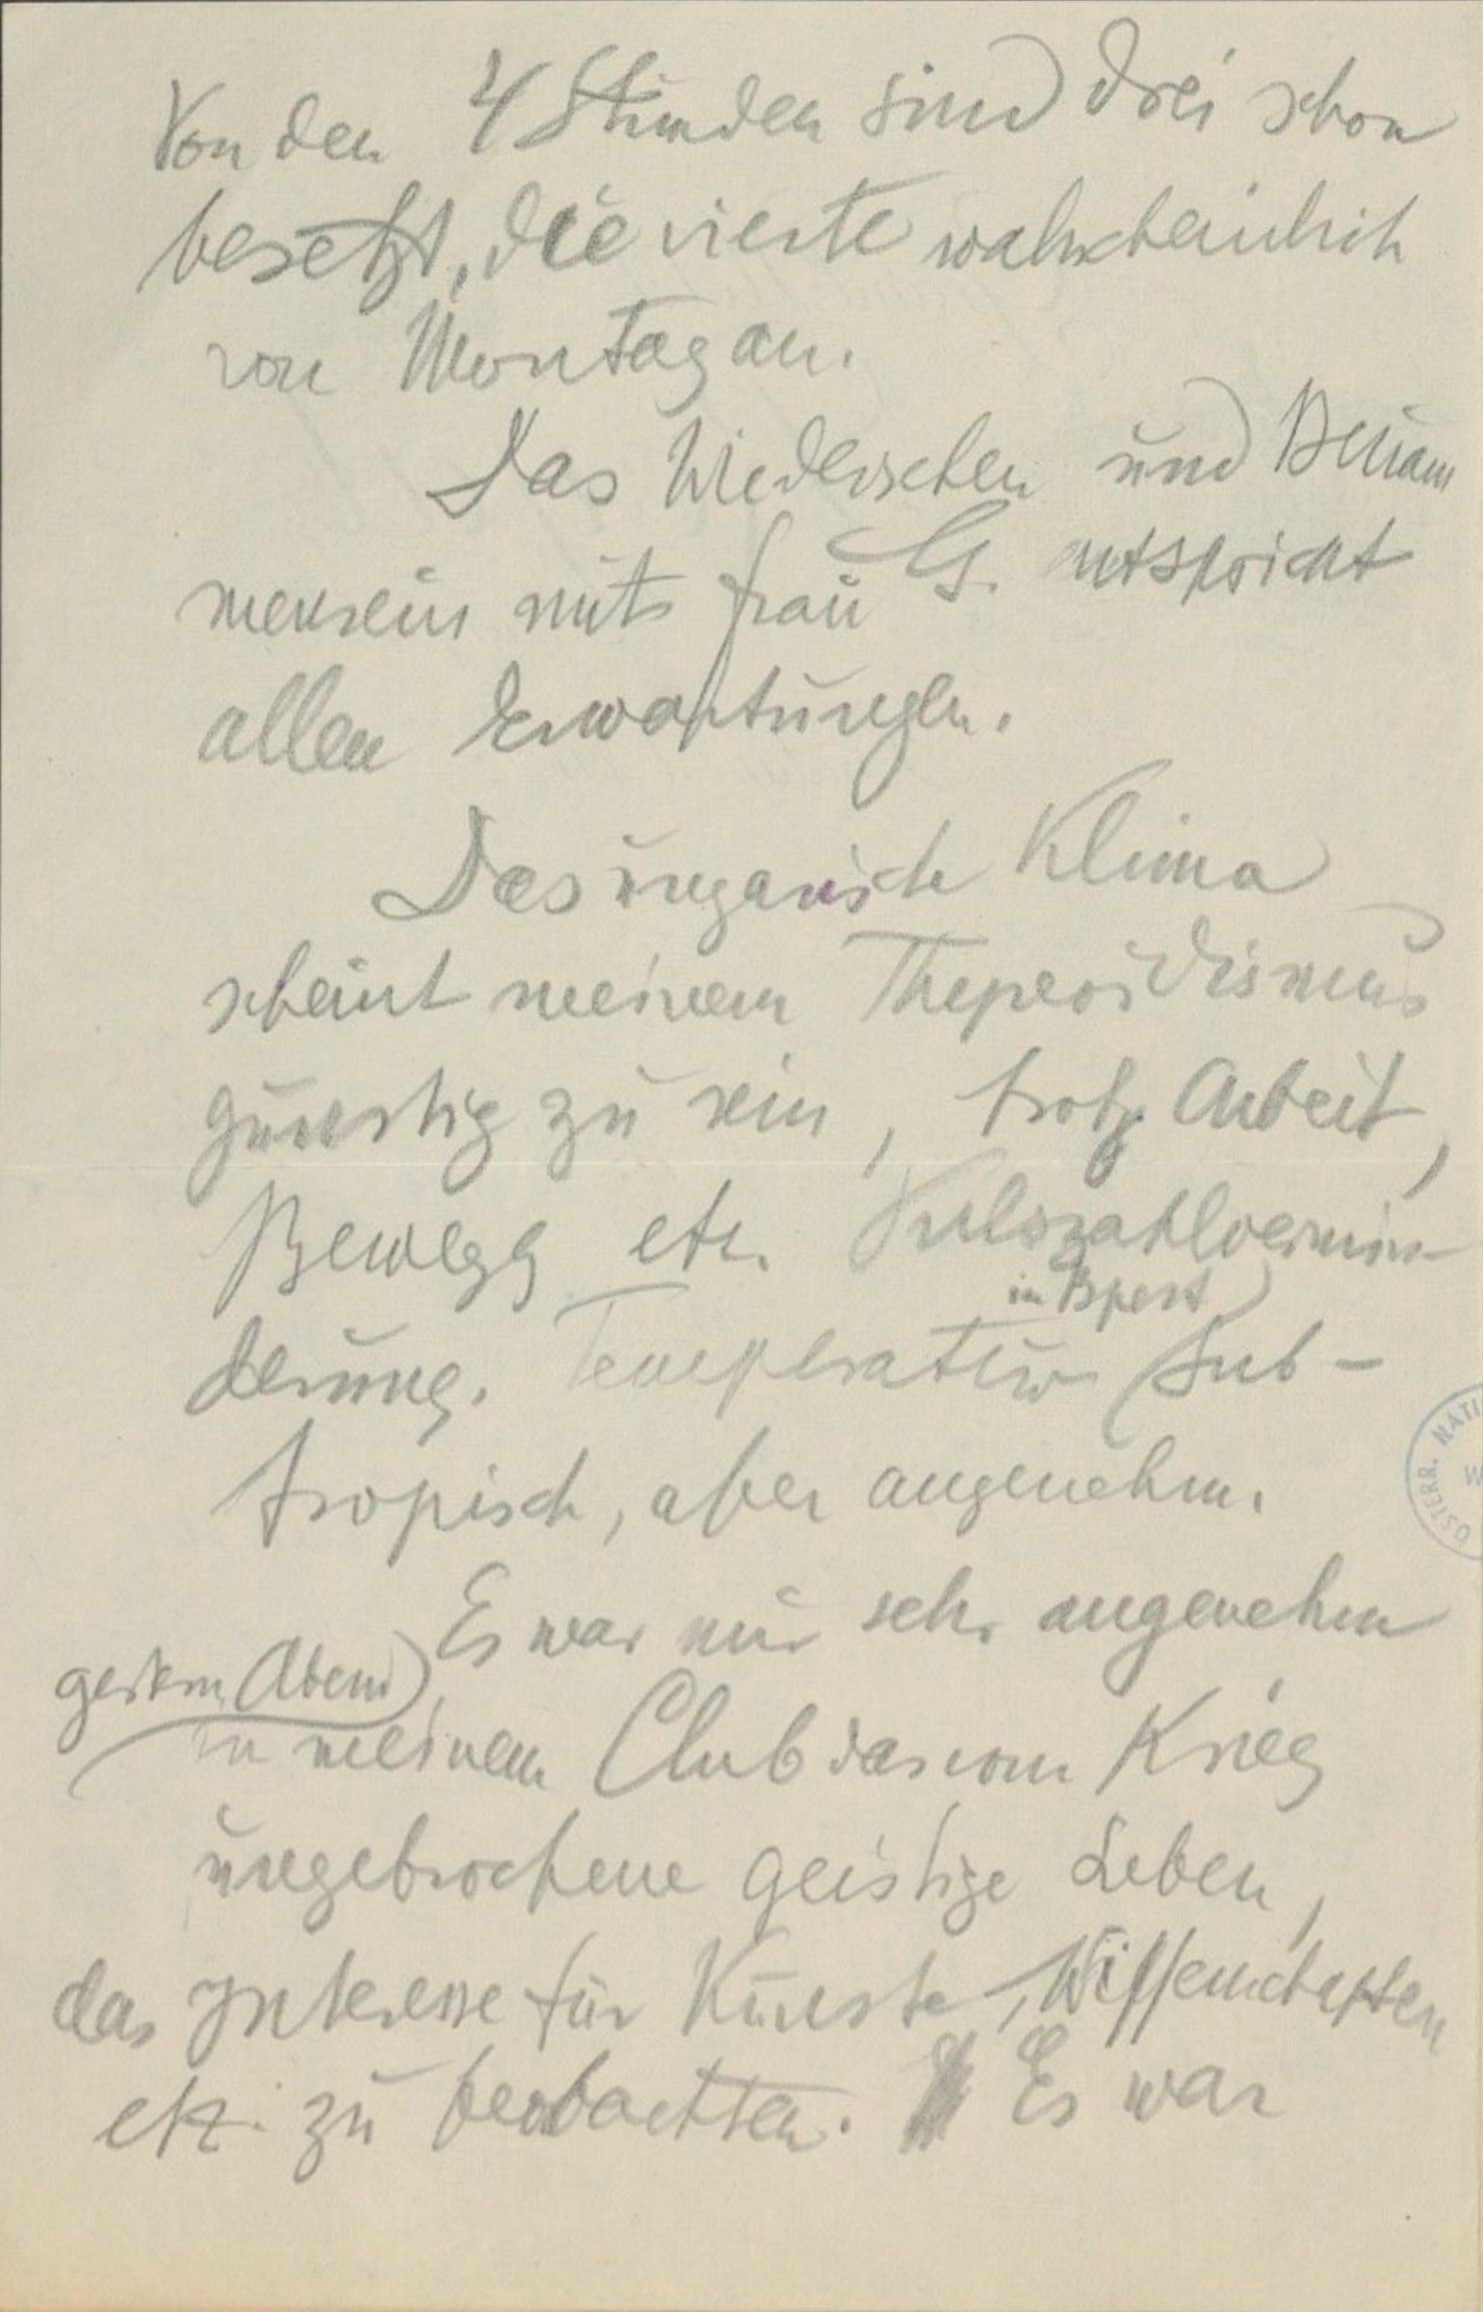 Von den 4 Stunden sind drei schon
besetzt, die vierte wahrscheinlich
von Montag an.
Das Wiedersehen und Beisam
mensein mit Frau G. entspricht
allen Erwartungen.
Das ungarische Klima
scheint meinem Thyreoidismus
günstig zu sein, trotz Arbeit,
Bewegg etc. Pulszahlvermin-
derung. Temperatur in Bpest sub-
tropisch, aber angenehm.
Es war mir sehr angenehm
gestern Abend
in meinem Club das vom Krieg
ungebrochene geistige Leben,
das Interesse für Künste, Wissenschaften
etz. zu beobachten. Es war
ÖSTERR. NATI
W